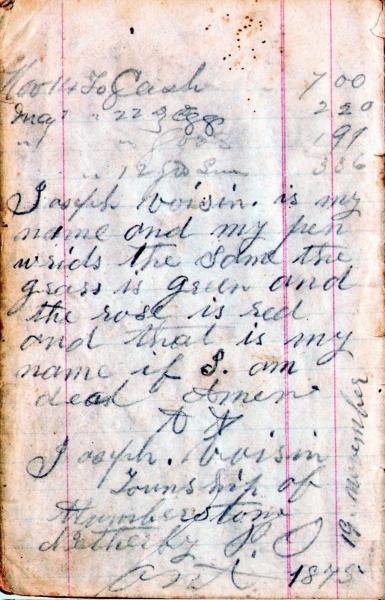 Nov 14 To Cash 7 00
Aug " 22 3 Egg 2 20
" " 1 91
" 12 3 36
Joseph Voisin. is my
name and my pen
wrids the Same the
grass is green and
the rose is red
and that is my
name if I. am
dead Amen
Joseph. Voisin
Township of
Humberstone
Netherby P O
Ont 1875
19 november